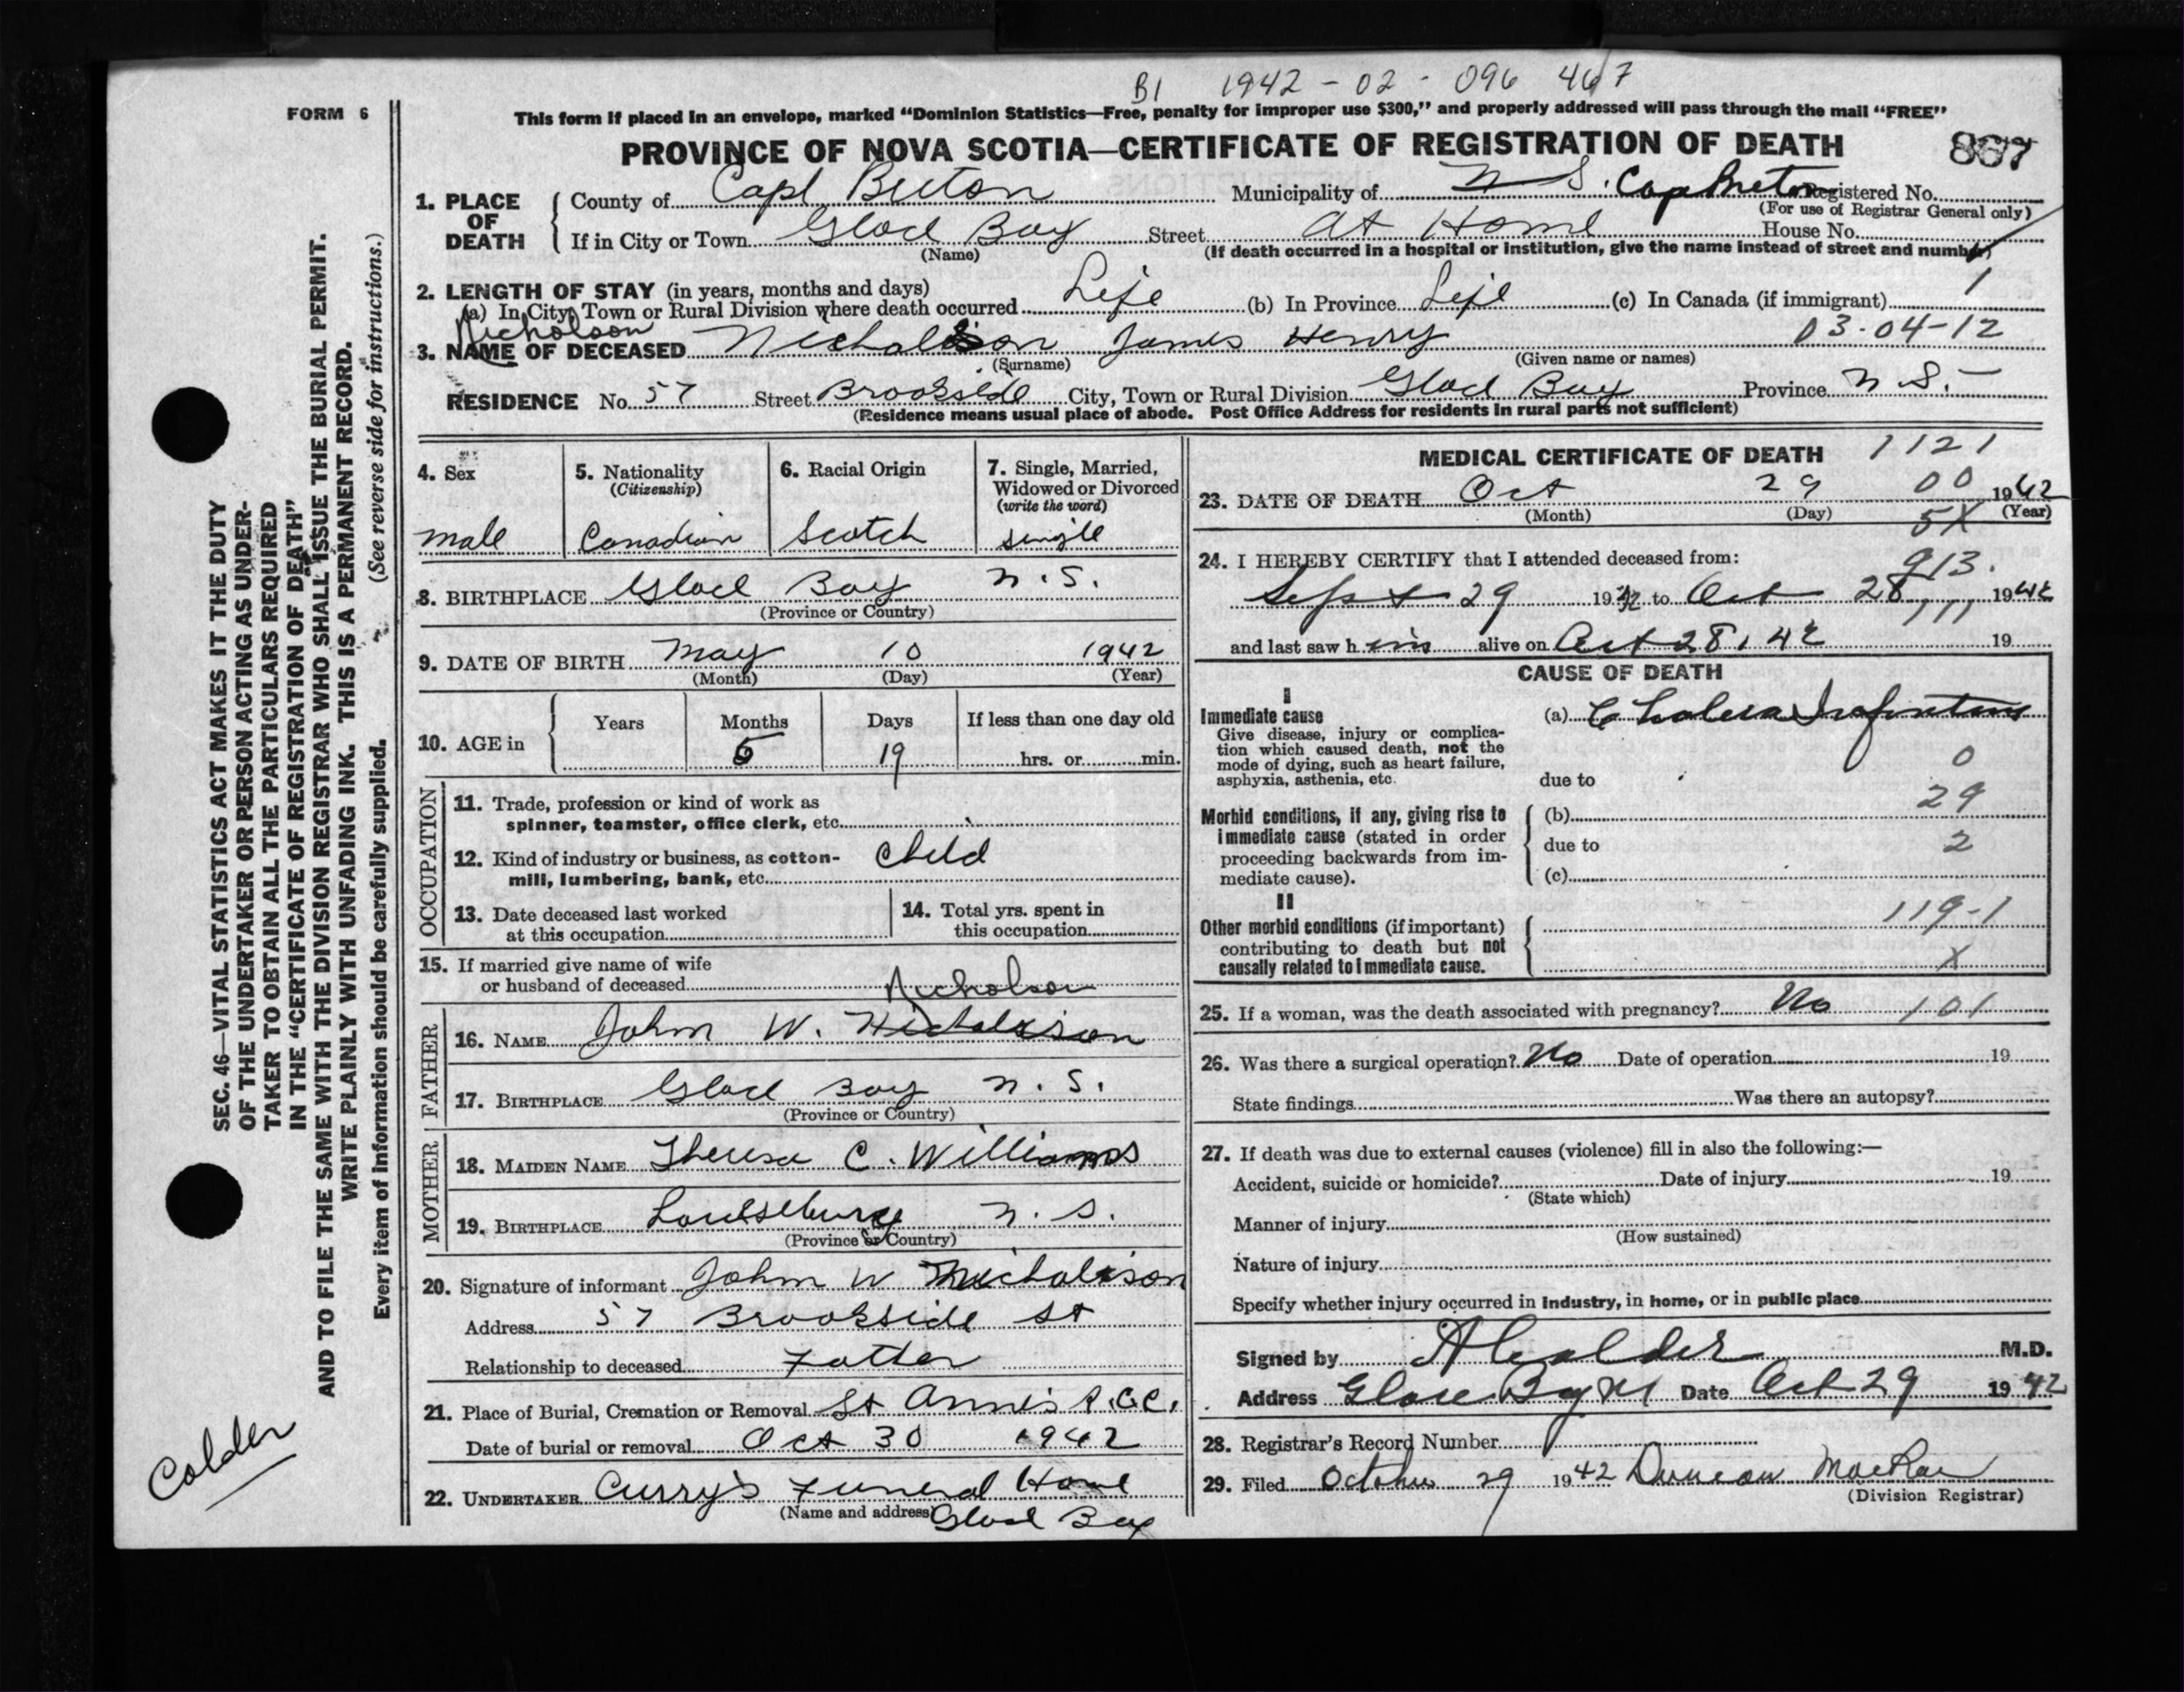 B1 1942 - 02 - 096 467
FORM 6
This form if placed in an envelope, marked “Dominion Statistics—Free, penalty for improper use $300,” and properly addressed will pass through the mail “FREE”
PROVINCE OF NOVA SCOTIA—CERTIFICATE OF REGISTRATION OF DEATH 867
1. PLACE OF DEATH
County of Cape Breton Municipality of N S. Cape Breton Registered No.
(For use of Registrar General only)
If in City or Town Glace Bay Street At Home House No.
(Name) (If death occurred in a hospital or institution, give the name instead of street and number)
2. LENGTH OF STAY (in years, months and days) 1
(a) In City, Town or Rural Division where death occurred Life (b) In Province Life (c) In Canada (if immigrant)
Nicholson 03-04-12
3. NAME OF DECEASED Nicholson James Henry
(Surname) (Given name or names)
RESIDENCE No. 57 Street Brookside City, Town or Rural Division Glace Bay Province N. S.
(Residence means usual place of abode. Post Office Address for residents in rural parts not sufficient)
4. Sex
male
5. Nationality
(Citizenship)
Canadian
6. Racial Origin
Scotch
7. Single, Married,
Widowed or Divorced
(write the word)
single
8. BIRTHPLACE Glace Bay N. S.
(Province or Country)
9. DATE OF BIRTH May 10 1942
(Month) (Day) (Year)
10. AGE in
Years Months Days If less than one day old
5 19 hrs. or min.
OCCUPATION
11. Trade, profession or kind of work as
spinner, teamster, office clerk, etc.
12. Kind of industry or business, as cotton- Child
mill, lumbering, bank, etc.
13. Date deceased last worked
at this occupation
14. Total yrs. spent in
this occupation
15. If married give name of wife
or husband of deceased
Nicholson
FATHER
16. NAME John W. Nicholson
17. BIRTHPLACE Glace Bay N. S.
(Province or Country)
MOTHER
18. MAIDEN NAME Theresa C. Williams
19. BIRTHPLACE Louisburg N. S.
(Province or Country)
20. Signature of informant John W Nicholson
Address 57 Brookside St
Relationship to deceased Father
21. Place of Burial, Cremation or Removal St Anne's R.C.C.
Date of burial or removal Oct 30 1942
22. UNDERTAKER Curry's Funeral Home
(Name and address) Glace Bay
MEDICAL CERTIFICATE OF DEATH 1121
00
23. DATE OF DEATH Oct 29 1942
(Month) (Day) (Year)
5X
24. I HEREBY CERTIFY that I attended deceased from:
913.
Sept 29 1942 to Oct 28 1942
111
and last saw him alive on Oct 28, 42 19
CAUSE OF DEATH
I
Immediate cause
Give disease, injury or complica-
tion which caused death, not the
mode of dying, such as heart failure,
asphyxia, asthenia, etc.
(a) Cholera Infantum
0
due to
29
Morbid conditions, if any, giving rise to
immediate cause (stated in order
proceeding backwards from im-
mediate cause).
(b)
due to 2
(c)
II
Other morbid conditions (if important)
contributing to death but not
causally related to immediate cause.
119-1
X
25. If a woman, was the death associated with pregnancy? No 101
26. Was there a surgical operation? No Date of operation 19
State findings Was there an autopsy?
27. If death was due to external causes (violence) fill in also the following:—
Accident, suicide or homicide? Date of injury 19
(State which)
Manner of injury
(How sustained)
Nature of injury
Specify whether injury occurred in industry, in home, or in public place
Signed by A Calder M.D.
Address Glace Bay NS Date Oct 29 1942
28. Registrar's Record Number
29. Filed October 29 1942 Duncan MacRae
(Division Registrar)
SEC. 46—VITAL STATISTICS ACT MAKES IT THE DUTY
OF THE UNDERTAKER OR PERSON ACTING AS UNDER-
TAKER TO OBTAIN ALL THE PARTICULARS REQUIRED
IN THE “CERTIFICATE OF REGISTRATION OF DEATH”
AND TO FILE THE SAME WITH THE DIVISION REGISTRAR WHO SHALL ISSUE THE BURIAL PERMIT.
WRITE PLAINLY WITH UNFADING INK. THIS IS A PERMANENT RECORD.
Every item of information should be carefully supplied. (See reverse side for instructions.)
Calder